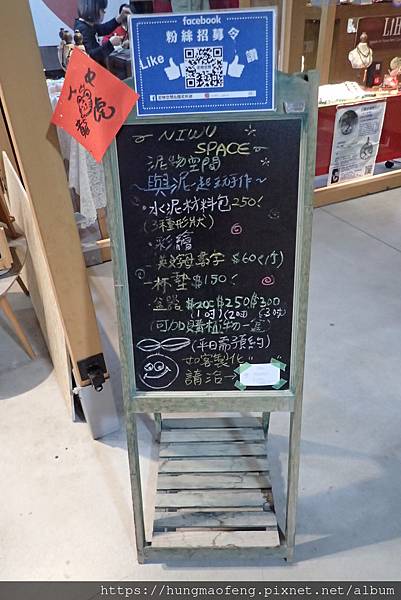 facebook
粉絲招募令
Like
讚
NIWU
SPACE
泥物空間
~與泥一起玩手作~
·水泥材料包250!
(3種形狀)
·彩繪
-英文字母 $60(1字)
-杯墊$150!
-盆器 $200 $250 $300
(1吋)(2吋)(3吋)
(可加購植物一盆)
(平日需預約)
"如客製化"
請洽→
LIH
https://hungmaofeng.pixnet.net/album